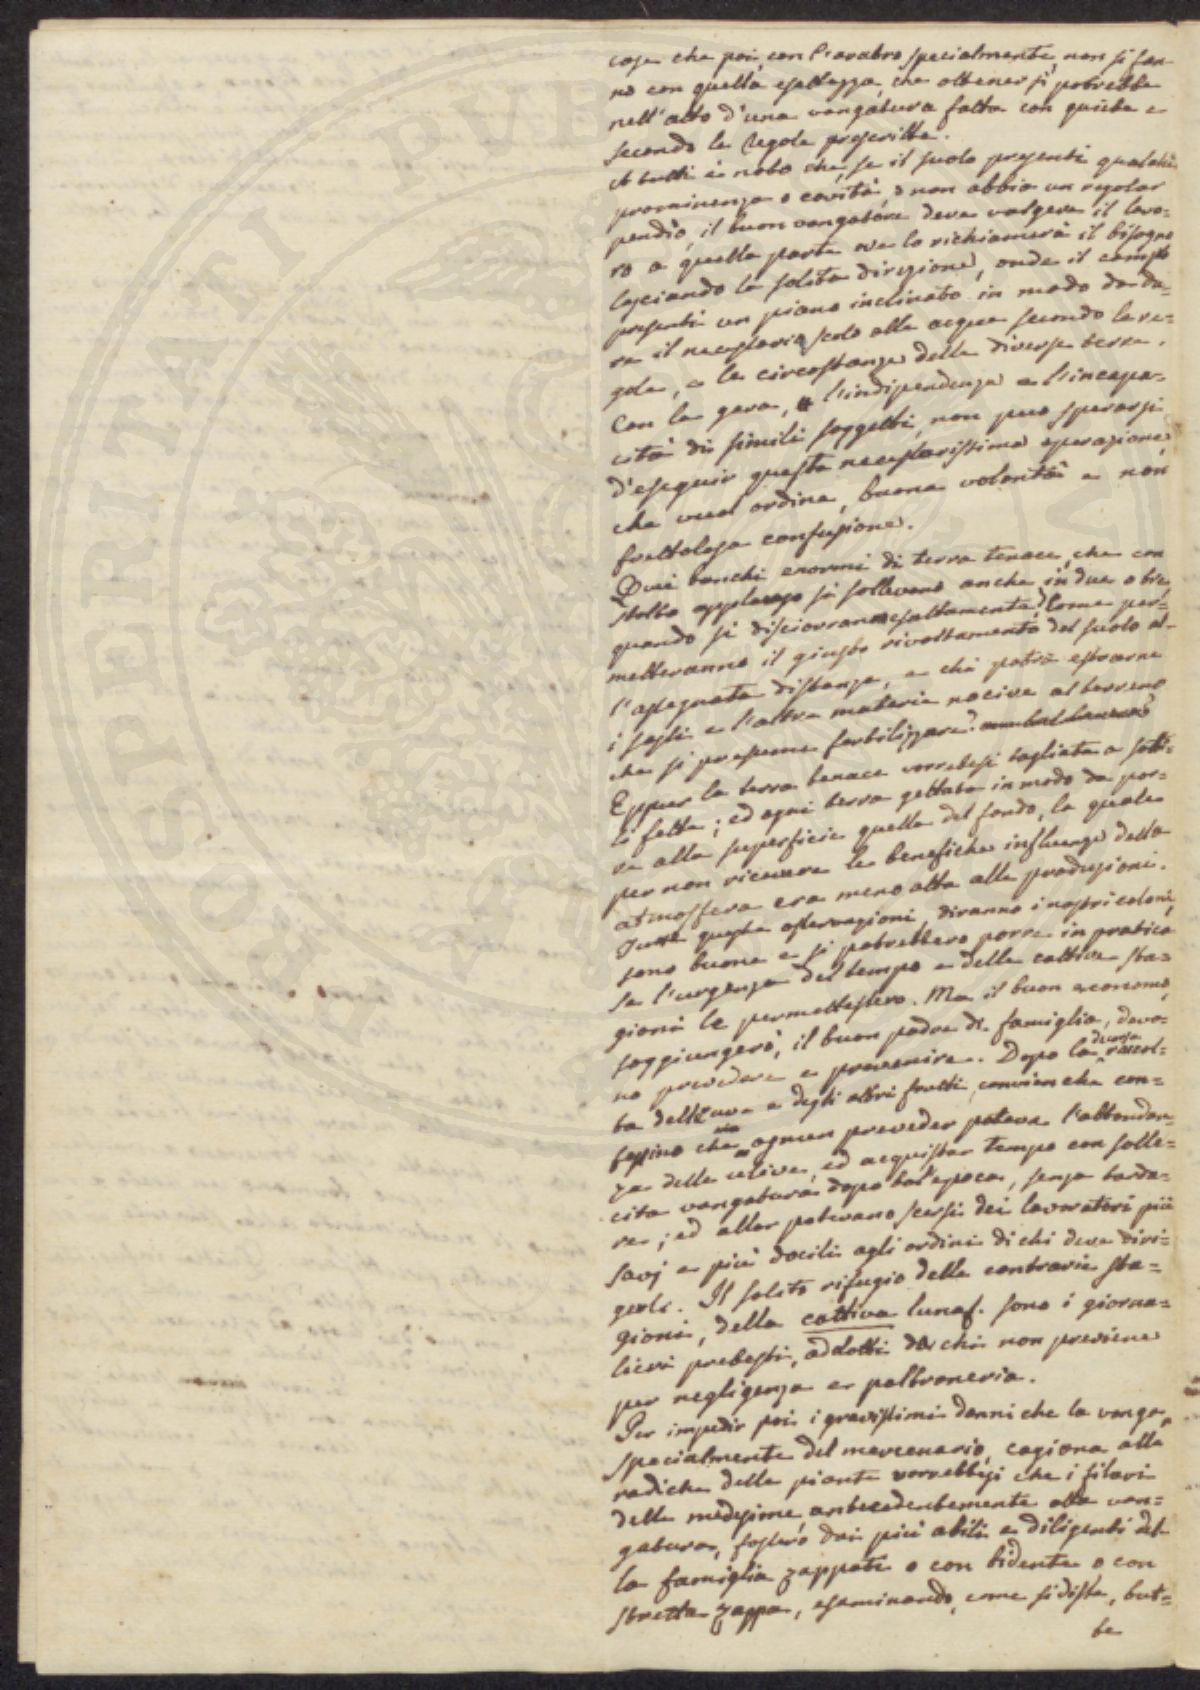 cose che poi, con l'aratro specialmente, non si fan-
no con quella esattezza, che ottener si potrebbe
nell'atto d'una vangatura fatta con quiete e
secondo le regole prescritte.
A tutti è noto che, se il suolo presenti qualche
prominenza o cavità, o non abbia un regolar
pendio, il buon vangatore deve volgere il lavo=
ro a quella parte ove lo richiamerà il bisogno
lasciando la solita direzione, onde il campo
presenti un piano inclinato in modo da da=
re il necessario scolo alle acque secondo le re=
gole, e le circostanze delle diverse terre.
Con la gara, l'indipendenza e l'incapa=
cità di simili soggetti, non può sperarsi
d'eseguir questa necessarissima operazione,
che vuol ordine, buona volontà e non
frettolosa confusione.
Quei banchi enormi di terra tenace, che con
stolto applauso si sollevano anche in due o tre
quando si disciorranno esattamente? Come per=
metteranno il giusto rivoltamento del suolo al-
l'assegnata distanza, e chi potrà estrarne
i sassi e l'altre materie nocive al terreno
che si presume fertilizzare?
Eppur la terra tenace vorrebbesi tagliata a sotti=
li fette; ed ogni terra gettata in modo da por=
re alla superficie quella del fondo, la quale
per non ricevere le benefiche influenze della
atmosfera era meno atta alle produzioni.
Tutte queste osservazioni, diranno i nostri coloni,
sono buone e si potrebbero porre in pratica
se l'urgenza del tempo e delle cattive sta=
gioni le permettessero. Ma il buon economo,
soggiungerò, il buon padre di famiglia, devo-
no prevedere e prevenire. Dopo la raccol=
ta dell'uva e degli altri frutti, convien che con=
fessino che ognun preveder poteva l'abbondan=
za delle ulive, ed acquistar tempo con solle=
cita vangatura dopo tal'epoca, senza tarda=
re; ed allor potevano scersi dei lavoratori più
savj e più docili agli ordini di chi deve diri=
gerli. Il solito rifugio delle contrarie sta=
gioni, della cattiva luna &. sono i giorna=
lieri pretesti, addotti da chi non previene
per negligenza e poltroneria.
Per impedir poi i gravissimi danni che la vanga,
specialmente del mercenario, cagiona alle
radiche delle piante vorrebbesi che i filari
delle medesime, antecedentemente alla van=
gatura, fossero dai più abili e diligenti del
la famiglia zappati o con bidente o con
stretta zappa, esaminando, come si disse, tut=
te